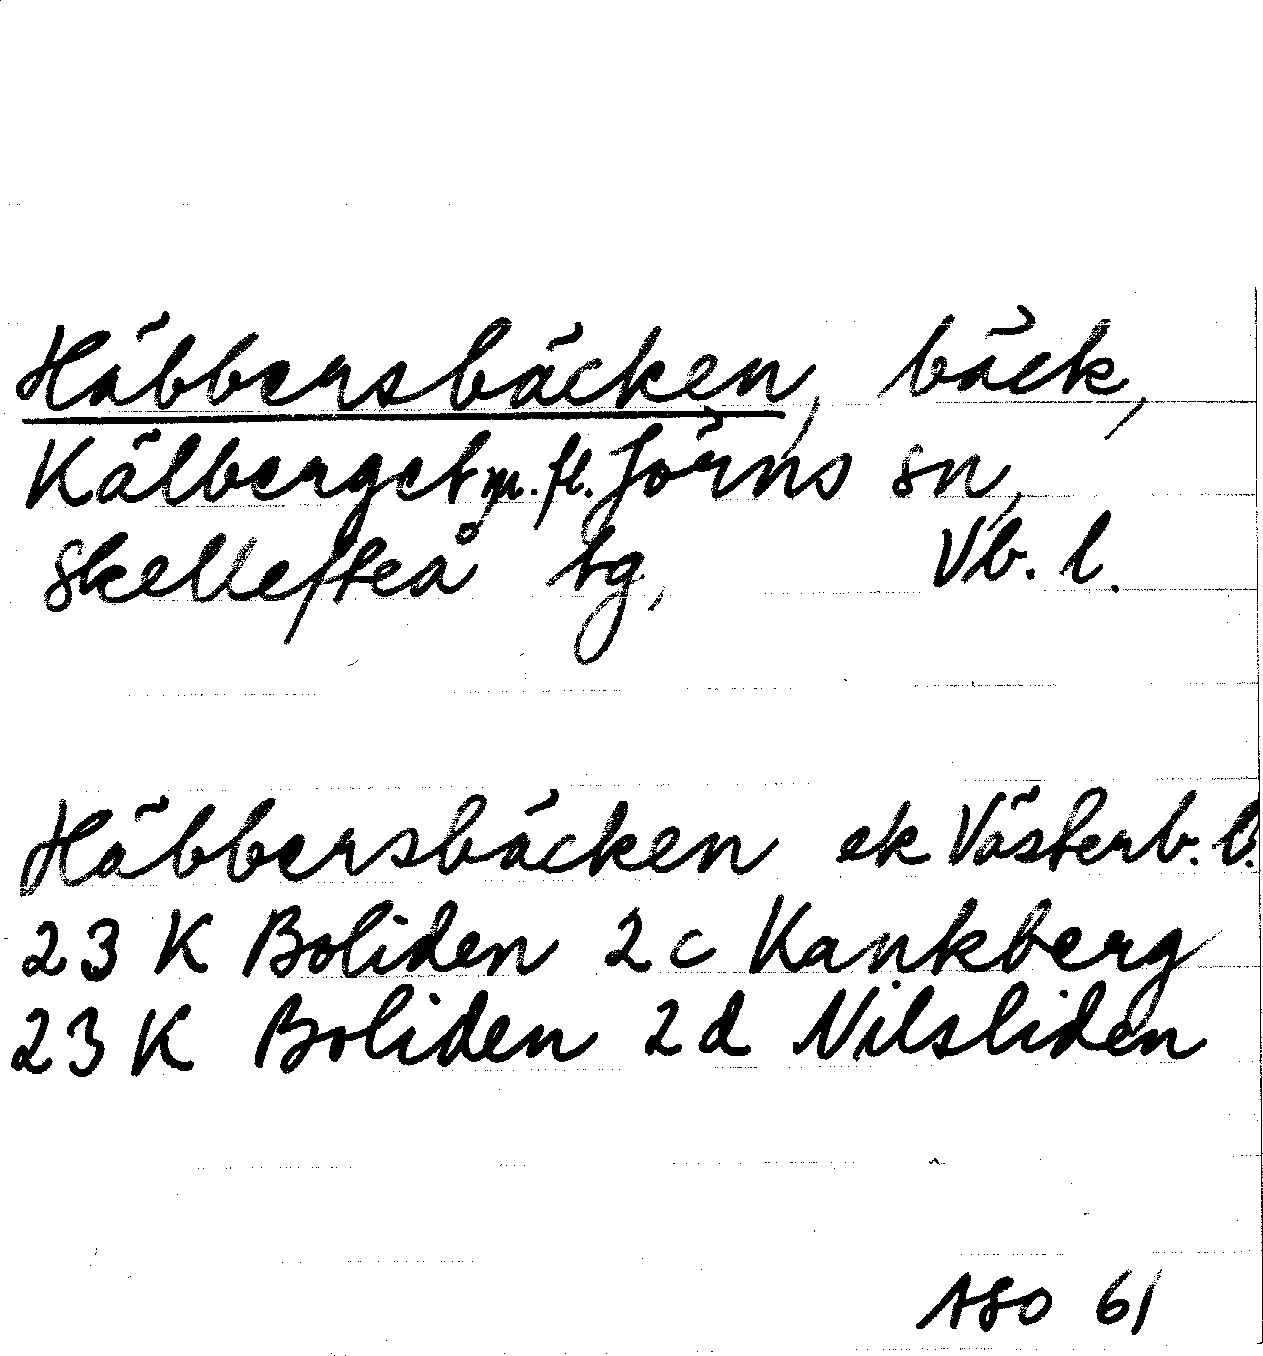 Häbbersbäcken, bäck,
Kälberget m.fl. Jörns sn,
Skellefteå tg, Vb. l.
Häbbersbäcken ek Västerb. l.
23 K Boliden 2c Kankberg
23 K Boliden 2d Nilsliden
ASO 61